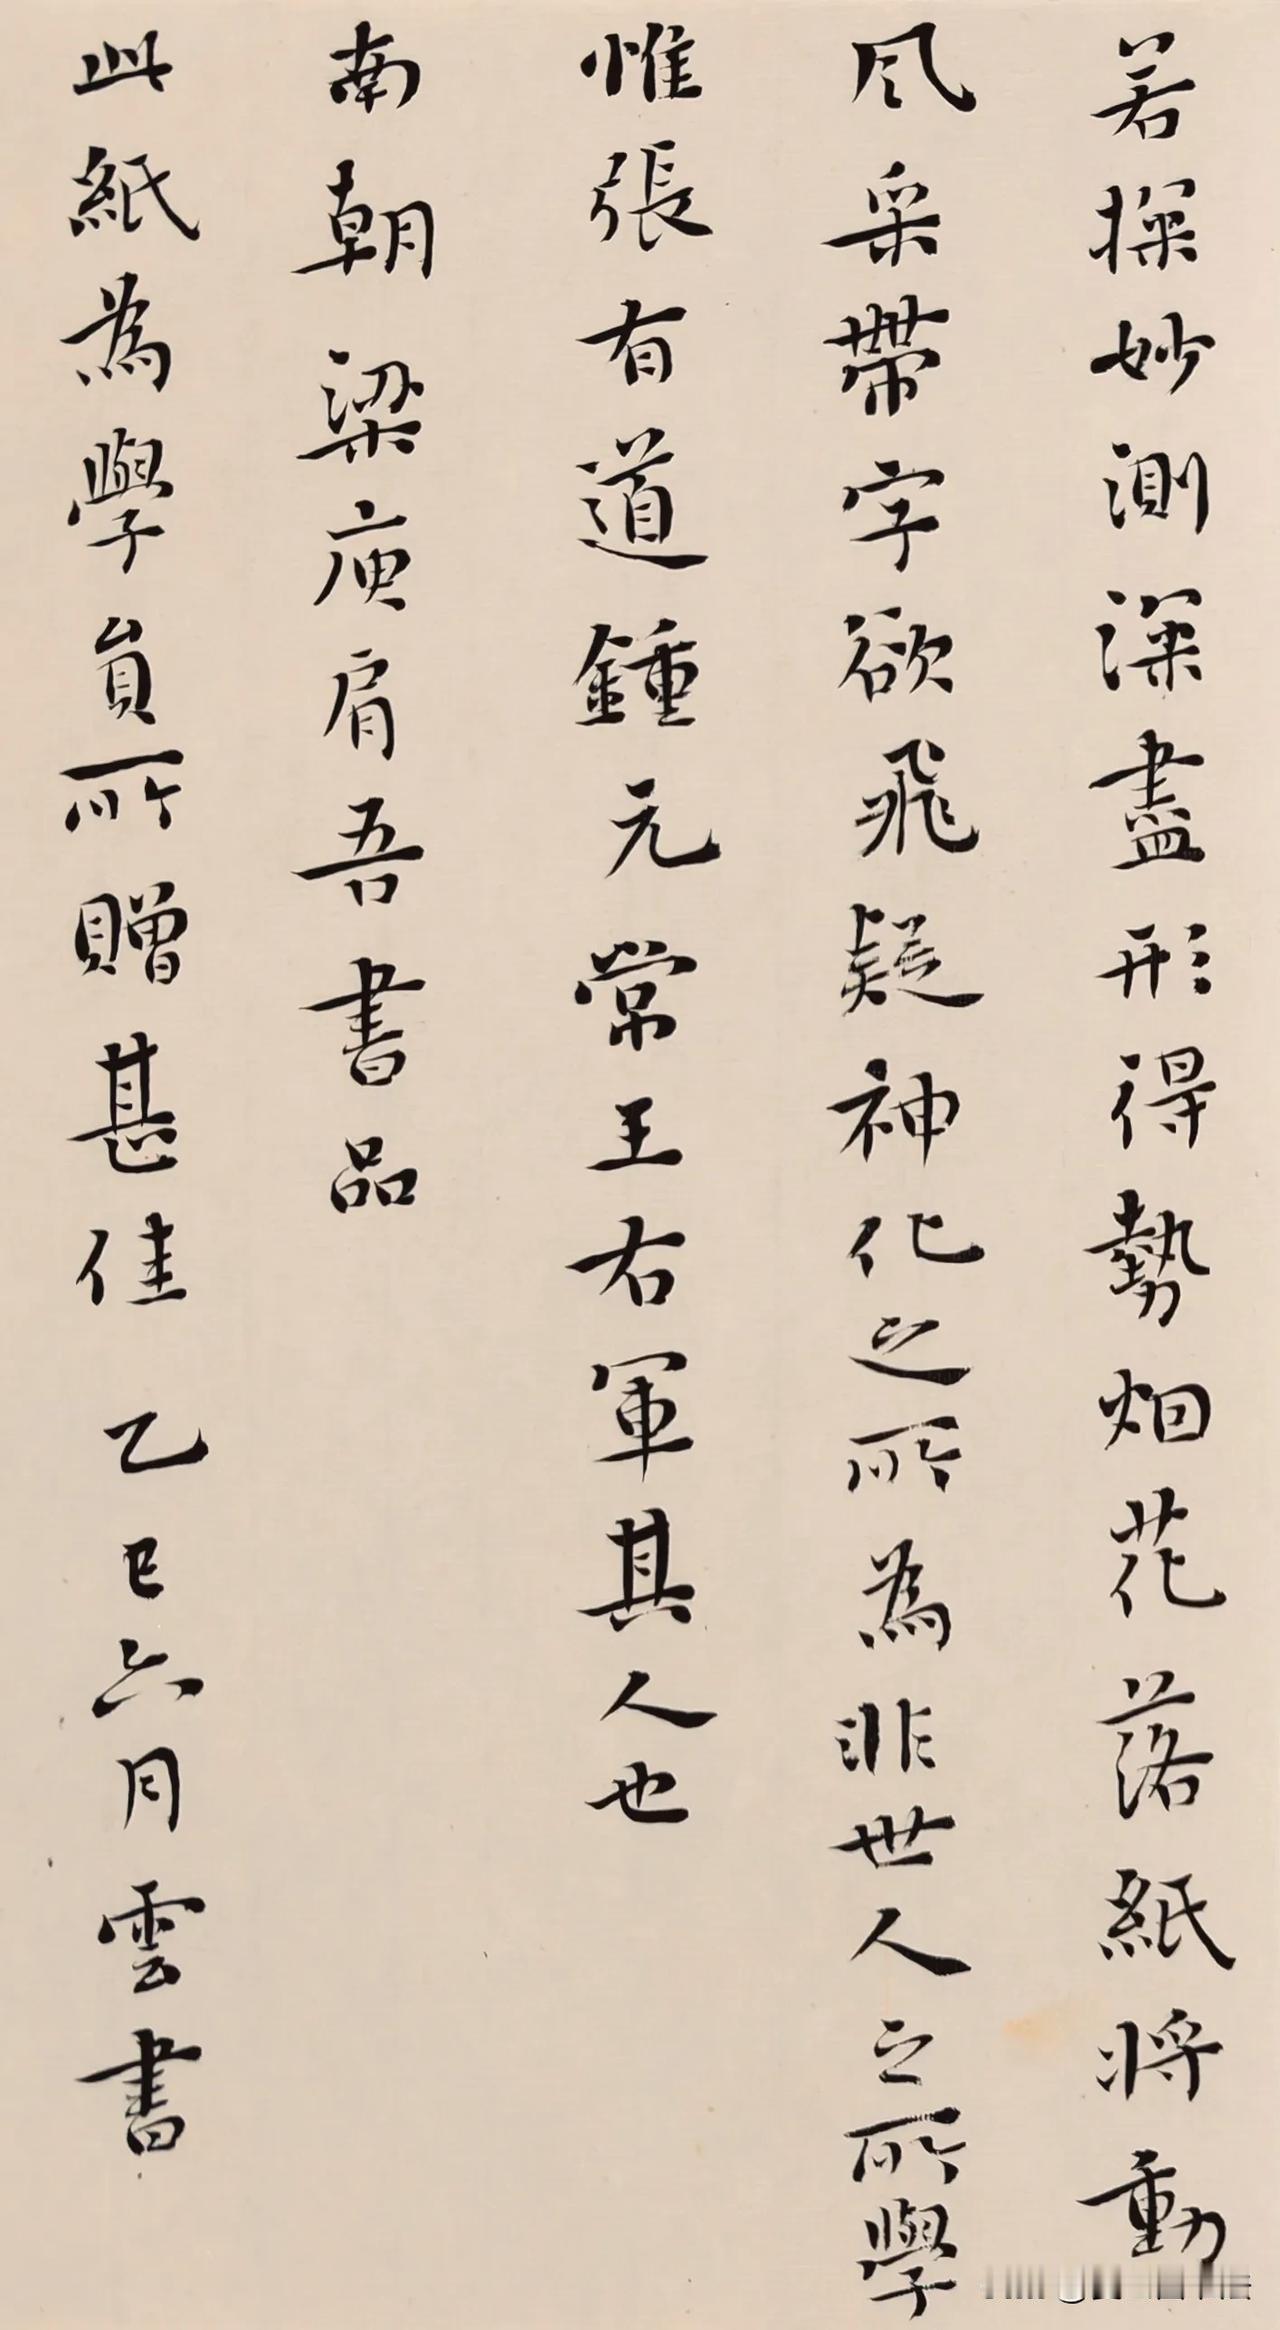 若探妙測深盡形得勢烟花落紙將動
風采帶字欲飛疑神化之所為非世人之所學
惟張有道鍾元常王右軍其人也
南朝梁庾肩吾書品
此紙為學員所贈甚佳乙巳六月雲書